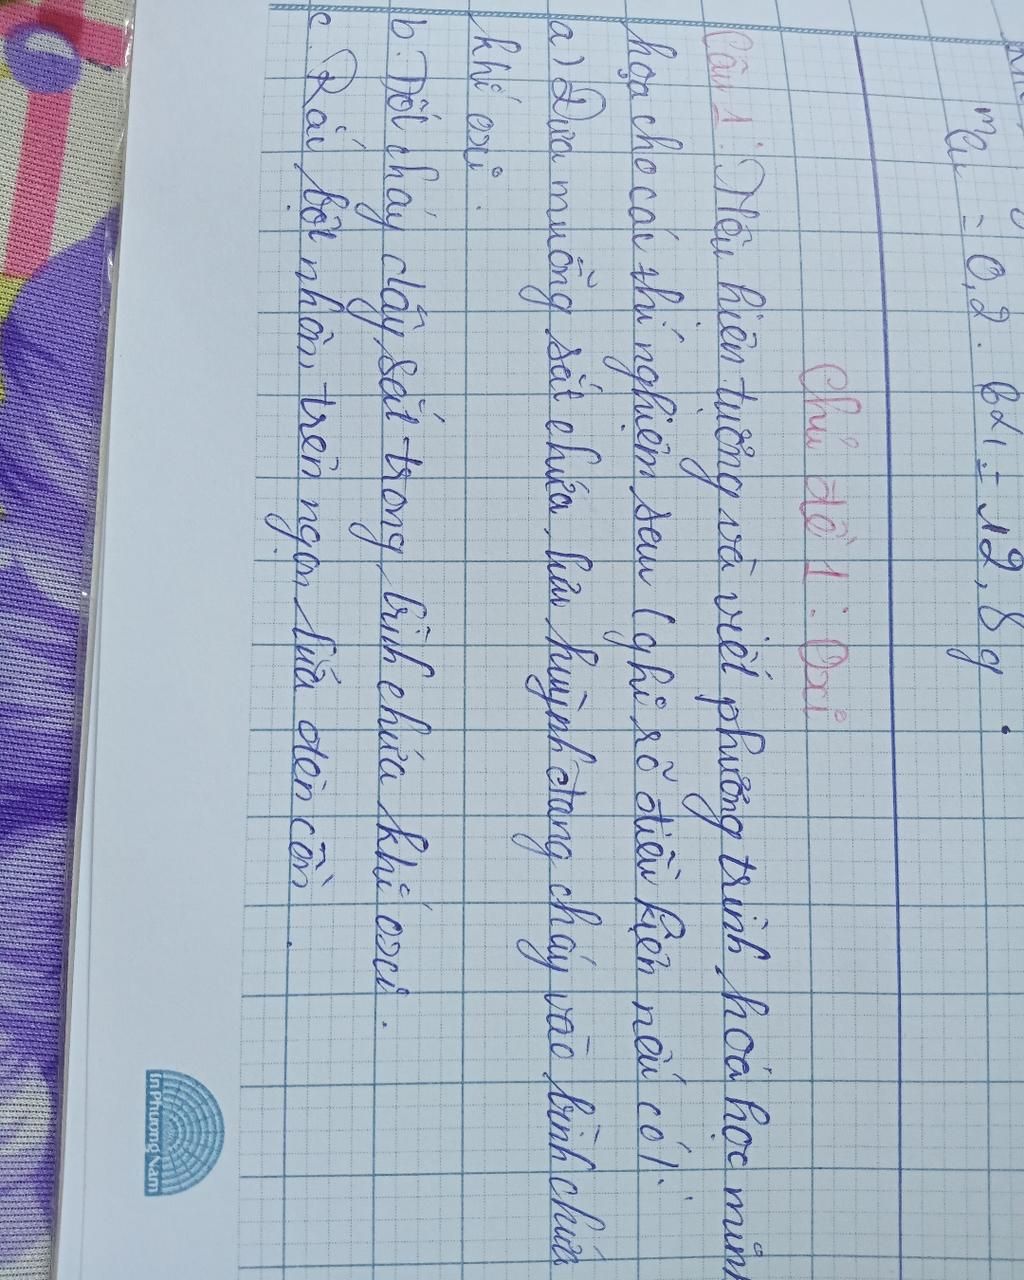 m Cu = 0,2 . 64 = 12,8 g
Chủ đề 1 : Oxi
Câu 1 : Nêu hiện tượng và viết phương trình hoá học minh
họa cho các thí nghiệm sau (ghi rõ điều kiện nếu có).
a) Đưa muỗng sắt chứa lưu huỳnh đang cháy vào bình chứa
khí oxi .
b. Đốt cháy dây sắt trong bình chứa khí oxi .
c. Rắc bột nhôm trên ngọn lửa đèn cồn .
in Phuong Nam